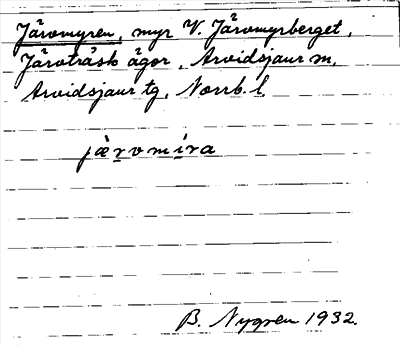 Järvmyren, myr V. Järvmyrberget,
Järvträsk ägor, Arvidsjaur sn,
Arvidsjaur tg, Norrb. l.
jærvmira
B. Nygren 1932.